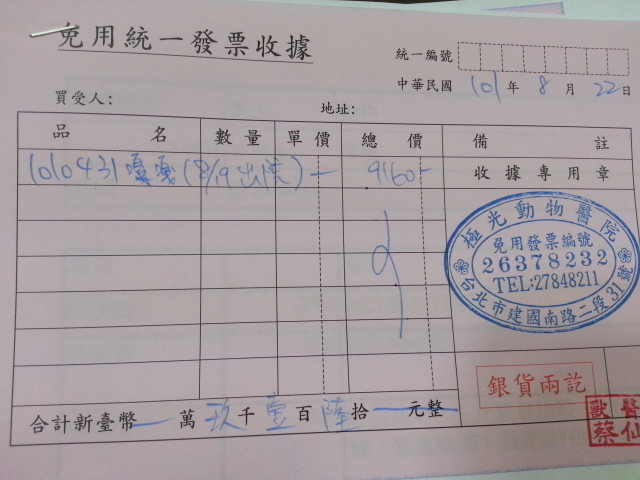 免用統一發票收據
統一編號
中華民國 101 年 8 月 22 日
買受人：
地址：
品名 數量 單價 總價 備註
1010431 嘎嘎 (8/19 出院) 一 9160-
收據專用章
極光動物醫院
免用發票編號
26378232
TEL:27848211
台北市建國南路二段31號
銀貨兩訖
合計新臺幣 一 萬 玖 千 壹 百 陸 拾 一 元整
獸醫
蔡仙